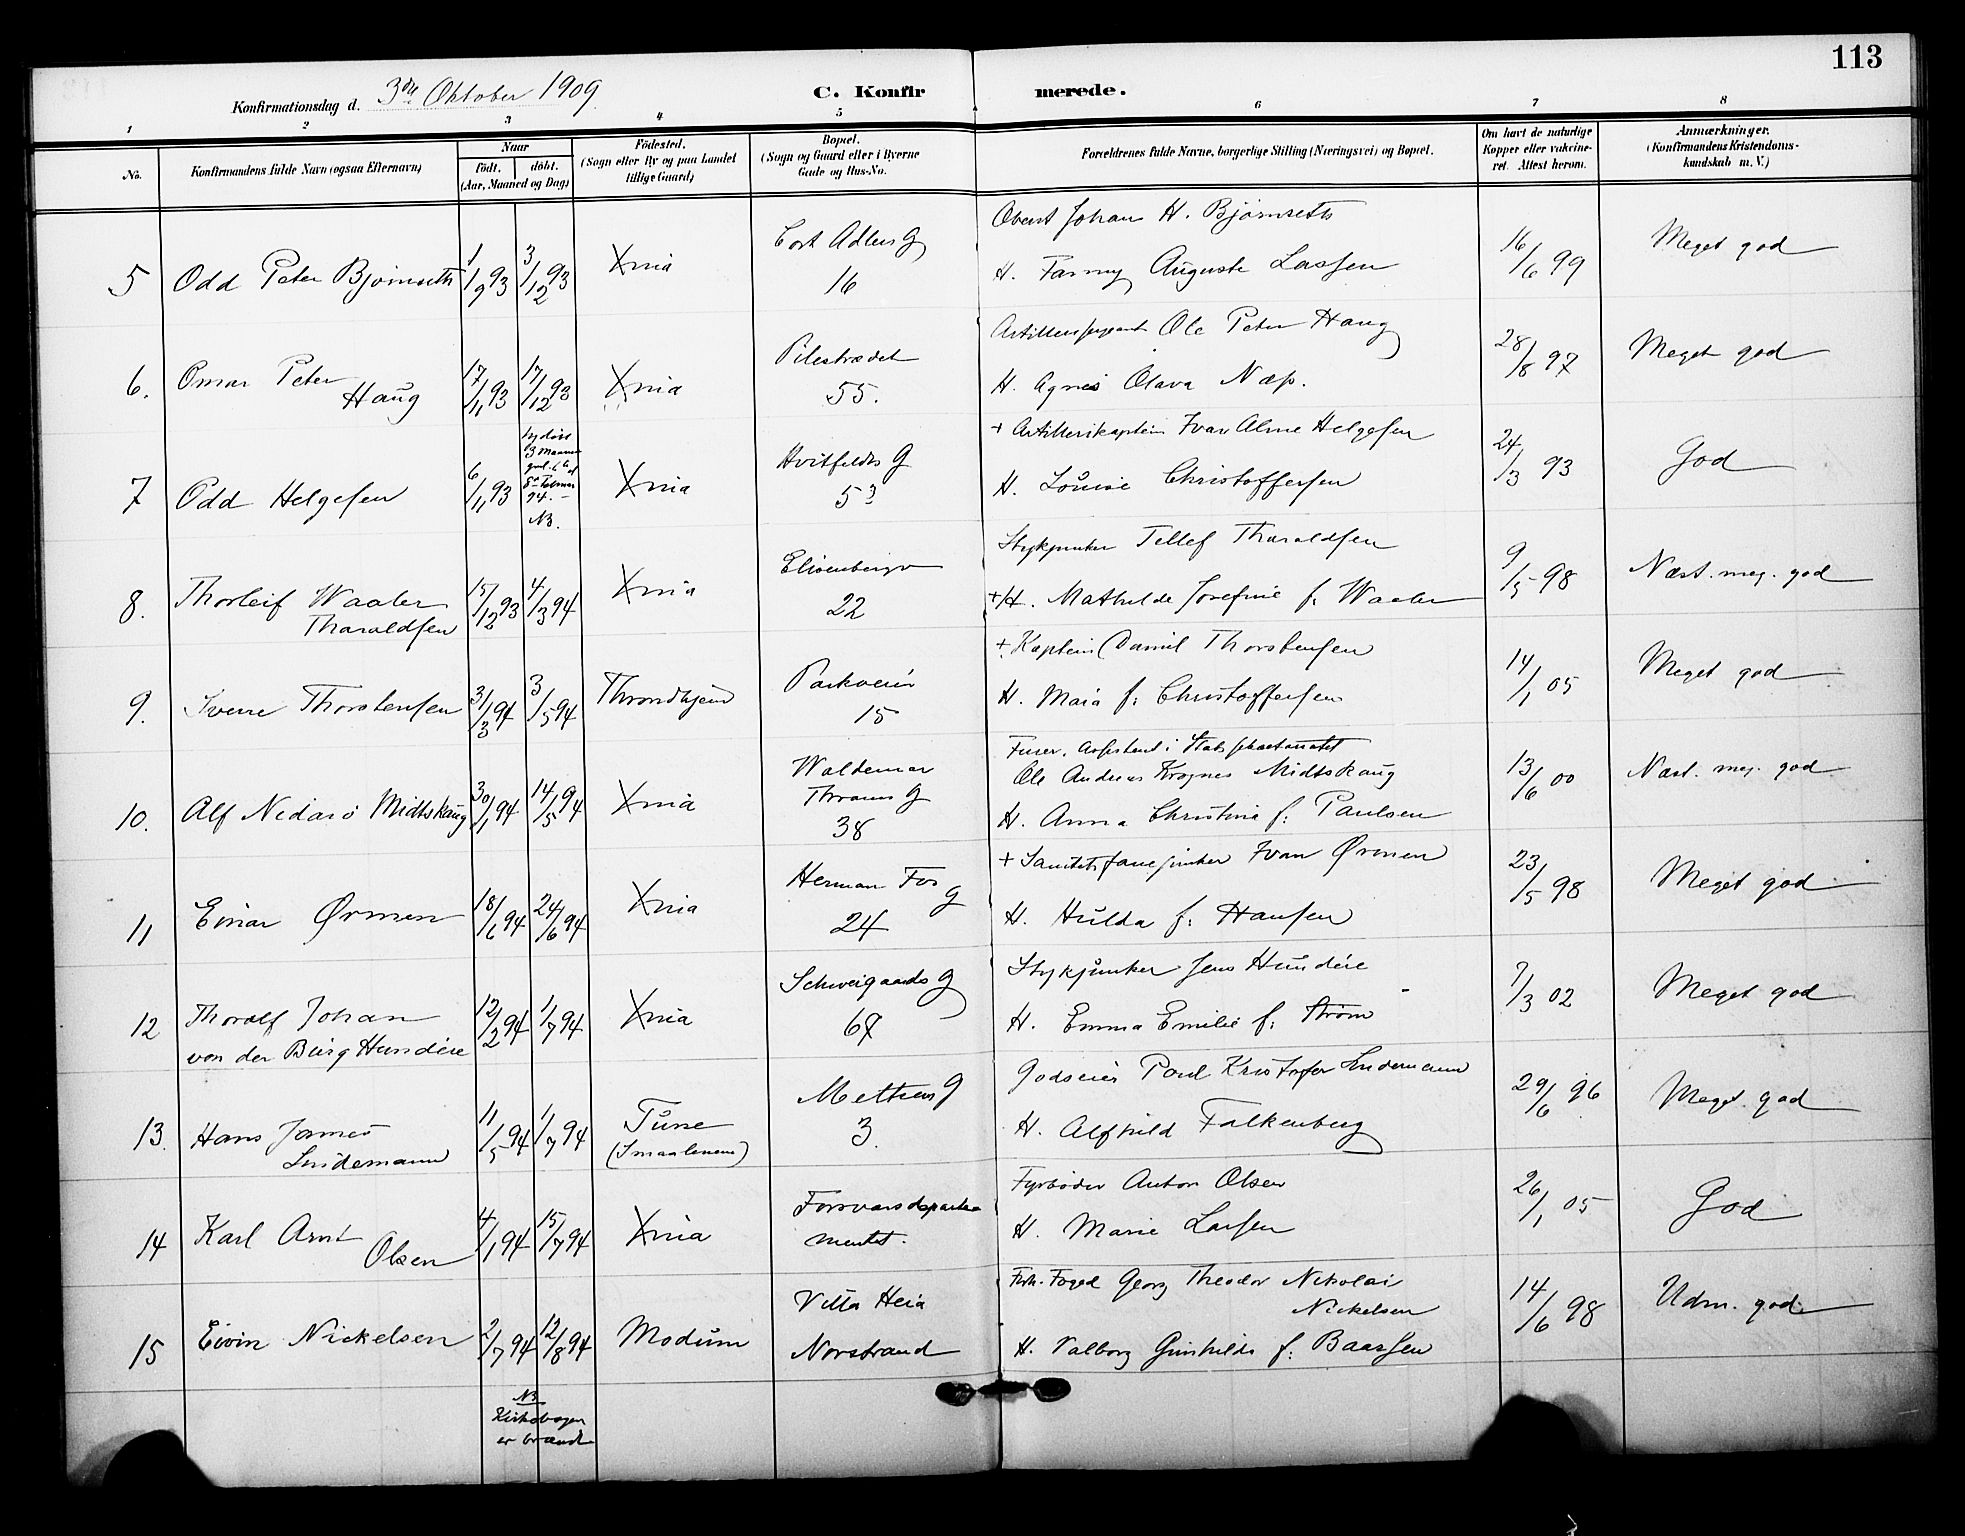 113
Konfirmationsdag d. 3die Oktober 1909. C. Konfirmerede.
1 2 3 4 5 6 7 8
No. Konfirmandens fulde Navn (ogsaa Efternavn) Naar født. døbt. (Aar, Maaned og Dag) Fødested. (Sogn eller By og paa Landet tillige Gaard) Bopæl. (Sogn og Gaard eller i Byerne Gade og Hus-No. Forældrenes fulde Navne, borgerlige Stilling (Næringsvei) og Bopæl. Om havt de naturlige Kopper eller vakcineret. Attest herom. Anmærkninger. (Konfirmandens Kristendomskundskab m. V.)
5 Odd Peter Bjørnseth 1/9 93 3/12 93 Xnia Cort Adlers G 16 Oberst Johan H. Bjørnseth
H. Fanny Auguste Lassen 16/6 99 Meget god
6. Omar Peter Haug 17/11 93 17/12 93 Xnia Pilestrædet 55. Artillerisergeant Ole Peter Haug
H. Agnes Olava Næss. 28/8 97 Meget god
7 Odd Helgesen 6/11 93 3 Maaneder 94. NB. Xnia Hvitfeldts G 53 + Artillerikaptein Ivar Alme Helgesen
H. Louise Christoffersen 24/3 93 God
8. Thorleif Waaler Tharaldsen 15/12 93 4/3 94 Xnia Elisenbergv 22 Stykjunker Tellef Tharaldsen
+H. Mathilde Josefine f: Waaler 9/5 98 Næst. meg. god
9. Sverre Thorstensen 31/3 94 3/5 94 Throndhjem Parkveien 15 + Kaptein Daniel Thorstensen
H. Maia f: Christoffersen 14/1 05 Meget god
10. Alf Nidarø Midtskaug 30/1 94 14/5 94 Xnia Waldemar Thranes G 38 Furer, Assistent i
Ole Andreas Midtskaug
H. Anna Christine f: Paulsen 13/6 00 Næst. meg. god
11 Einar Ørmen 18/6 94 24/6 94 Xnia Herman Foss G 24 + Sanitetsfanejunker Ivan Ørmen
H. Hulda f: Hansen 23/5 98 Meget god
12 Thoralf Johan von der Burg Hundere 12/2 94 1/7 94 Xnia Schweigaards G 67 Stykjunker Jens Hundere
H. Emma Emilie f: Strøm 7/3 02 Meget god
13. Hans James Lindemann 11/5 94 1/7 94 Tune (Smaalenene) Meltzers G 3. Godseier Poul Kristofer Lindemann
H. Alfhild Falkenberg 29/6 96 Meget god
14 Karl Arnt Olsen 4/1 94 15/7 94 Xnia Forsvarsdepartementet. Fyrbøder Anton Olsen
H. Marie Larsen 26/1 05 God
15 Eivin Nickelsen 2/7 94 12/8 94 Modum Villa Heia Norstrand Forh. Foged Georg Theodor Nikolai Nickelsen
H. Valborg Gunhilds f: Baassen 14/6 98 Udm. god.
NB
Kirkebogen
er brændt